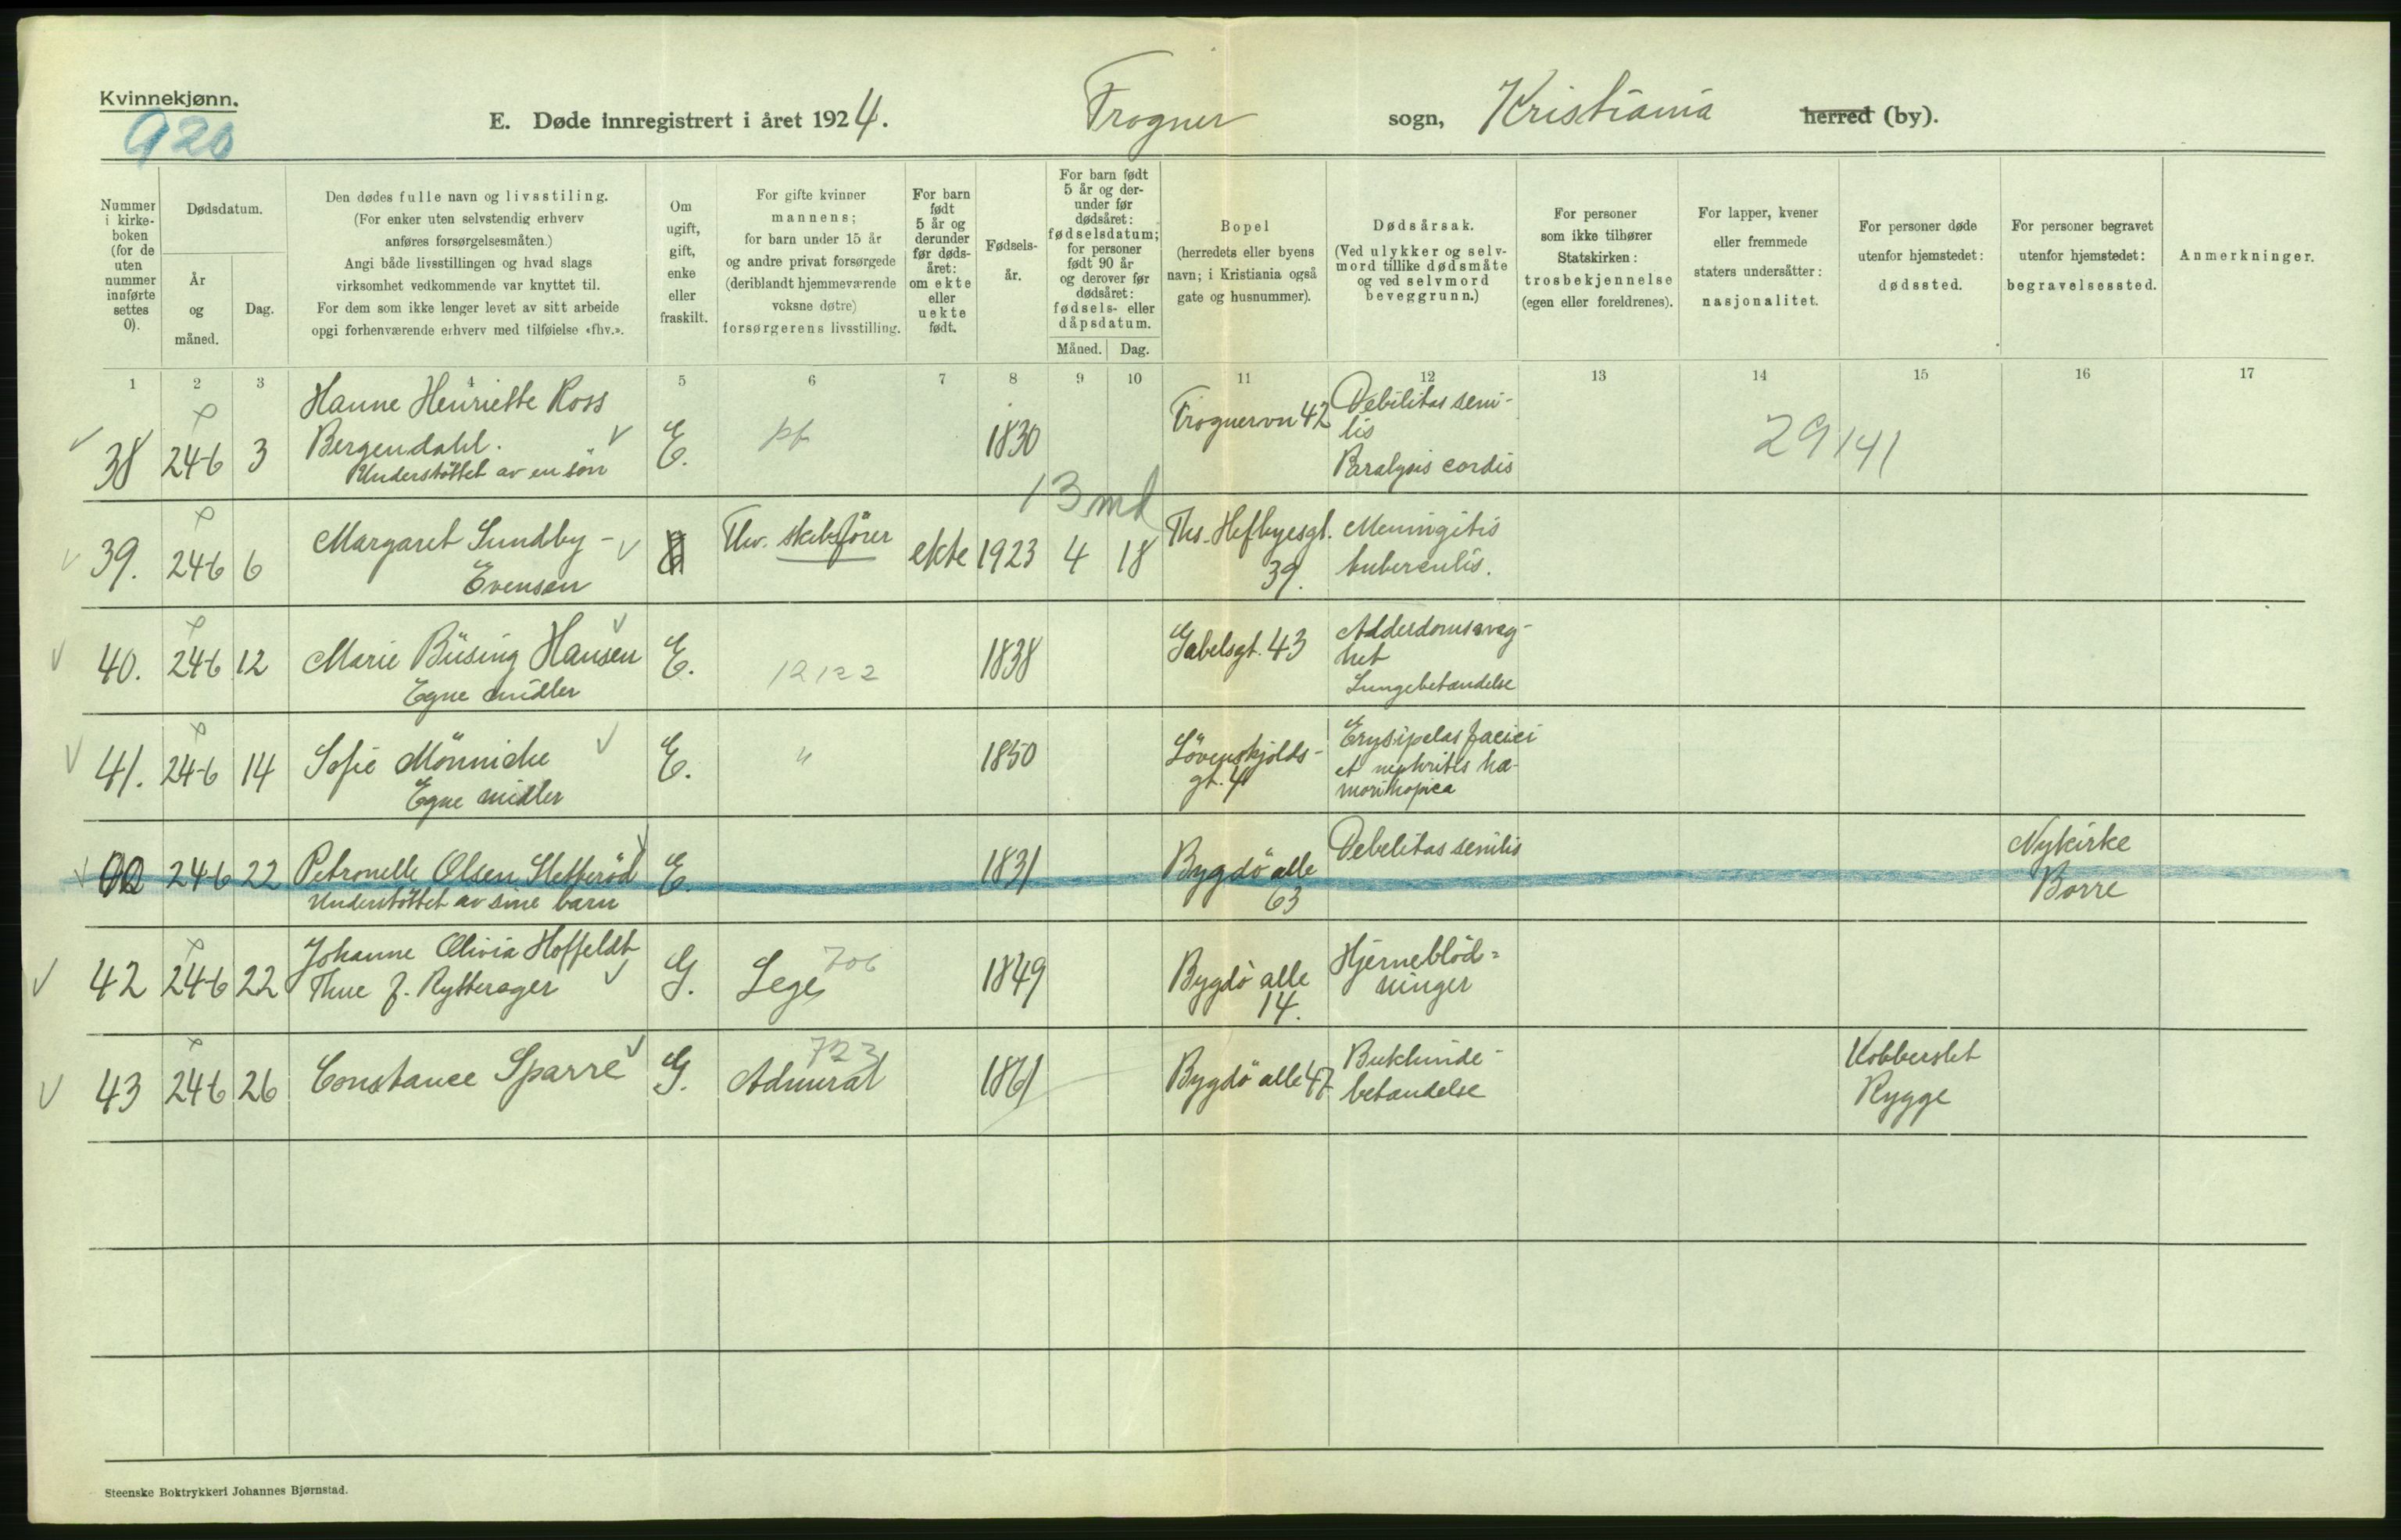 Kvinnekjønn.
920
E. Døde innregistrert i året 1924.
Frogner sogn, Kristiania herred (by).
Nummer i kirke-boken (for de uten nummer innførte settes 0).
Dødsdatum.
År og måned.
Dag.
Den dødes fulle navn og livsstiling.
(For enker uten selvstendig erhverv
anføres forsørgelsesmåten.)
Angi både livsstillingen og hvad slags
virksomhet vedkommende var knyttet til.
For dem som ikke lenger levet av sitt arbeide
opgi forhenværende erhverv med tilføielse «fhv.».
Om ugift, gift, enke eller fraskilt.
For gifte kvinner
mannens;
for barn under 15 år
og andre privat forsørgede
(deriblandt hjemmeværende
voksne døtre)
forsørgerens livsstilling.
For barn født 5 år og derunder før døds-året: om ekte eller uekte født.
Fødsels-år.
For barn født
5 år og der-
under før
dødsåret:
fødselsdatum;
for personer
født 90 år
og derover før
dødsåret:
fødsels- eller
dåpsdatum.
Måned. Dag.
Bopel
(herredets eller byens
navn; i Kristiania også
gate og husnummer).
Dødsårsak.
(Ved ulykker og selv-
mord tillike dødsmåte
og ved selvmord
beveggrunn.)
For personer
som ikke tilhører
Statskirken:
trosbekjennelse
(egen eller foreldrenes).
For lapper, kvener
eller fremmede
staters undersåtter:
nasjonalitet.
For personer døde
utenfor hjemstedet:
dødssted.
For personer begravet
utenfor hjemstedet:
begravelsessted.
Anmerkninger.
1 2 3 4 5 6 7 8 9 10 11 12 13 14 15 16 17
38 24-6 3 Hanne Henriette Ross
Bergendahl.
Understöttet av en sön
E. 1830 Frognervn 42
Debilitas seni-
lis
Paralysis cordis
29141
13 md
39. 24-6 6 Margaret Sundby-
Evensen
Fhv. skibsförer ekte 1923 4 18 Ths. Heftyesgt.
39.
Meningitis
tuberculis.
40. 24-6 12 Marie Büsing Hansen
Egne midler
E. 12122 1838 Gabelsgt. 43
Alderdomssvag-
het
Lungebetændelse
41. 24-6 14 Sofie Mönniche
Egne midler
E. " 1850 Lövenskjolds-
gt. 4
Erysipelas faciei
et nephritis hæ-
24-6 22 Petronelle Olsen Sletteröd
Understöttet av sine barn
E. 1831 Bygdö alle
63
Debelitas senilis
Nykirke
Borre
42 24-6 22 Johanne Olivia Hoffeldt
Thue f. Rytterager
G. Lege 706 1849 Bygdö alle
14.
Hjerneblöd=
ninger
43 24-6 26 Constance Sparre
G. Admiral 723 1861 Bygdö alle 47
Bukhinde-
betændelse
Kobberslet
Rygge
Steenske Boktrykkeri Johannes Bjørnstad.